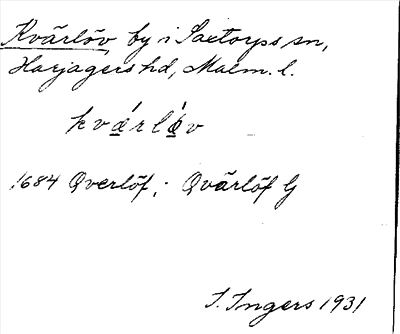 Kvärlöv by i Saxtorps sn,
Harjagers hd, Malm. l.
kvǽrlǿv
1684 Qverlöf; Qvärlöf G
I. Ingers 1931